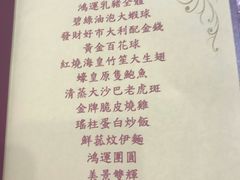 鴻運乳豬全體
碧綠油泡大蝦球
發財好市大利配金錢
黃金百花球
紅燒海皇竹笙大生翅
蠔皇原隻鮑魚
清蒸大沙巴老虎斑
金牌脆皮燒雞
瑤柱蛋白炒飯
鮮菇炆伊麵
鴻運團圓
美景雙輝